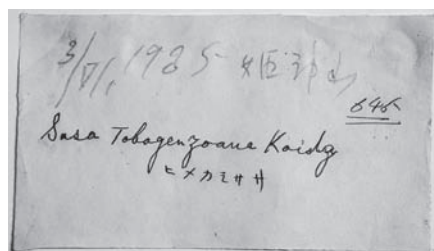 3/VI, 1925 姫神山
646
Sasa Tobagenzoana Koidz
ヒメカミザサ